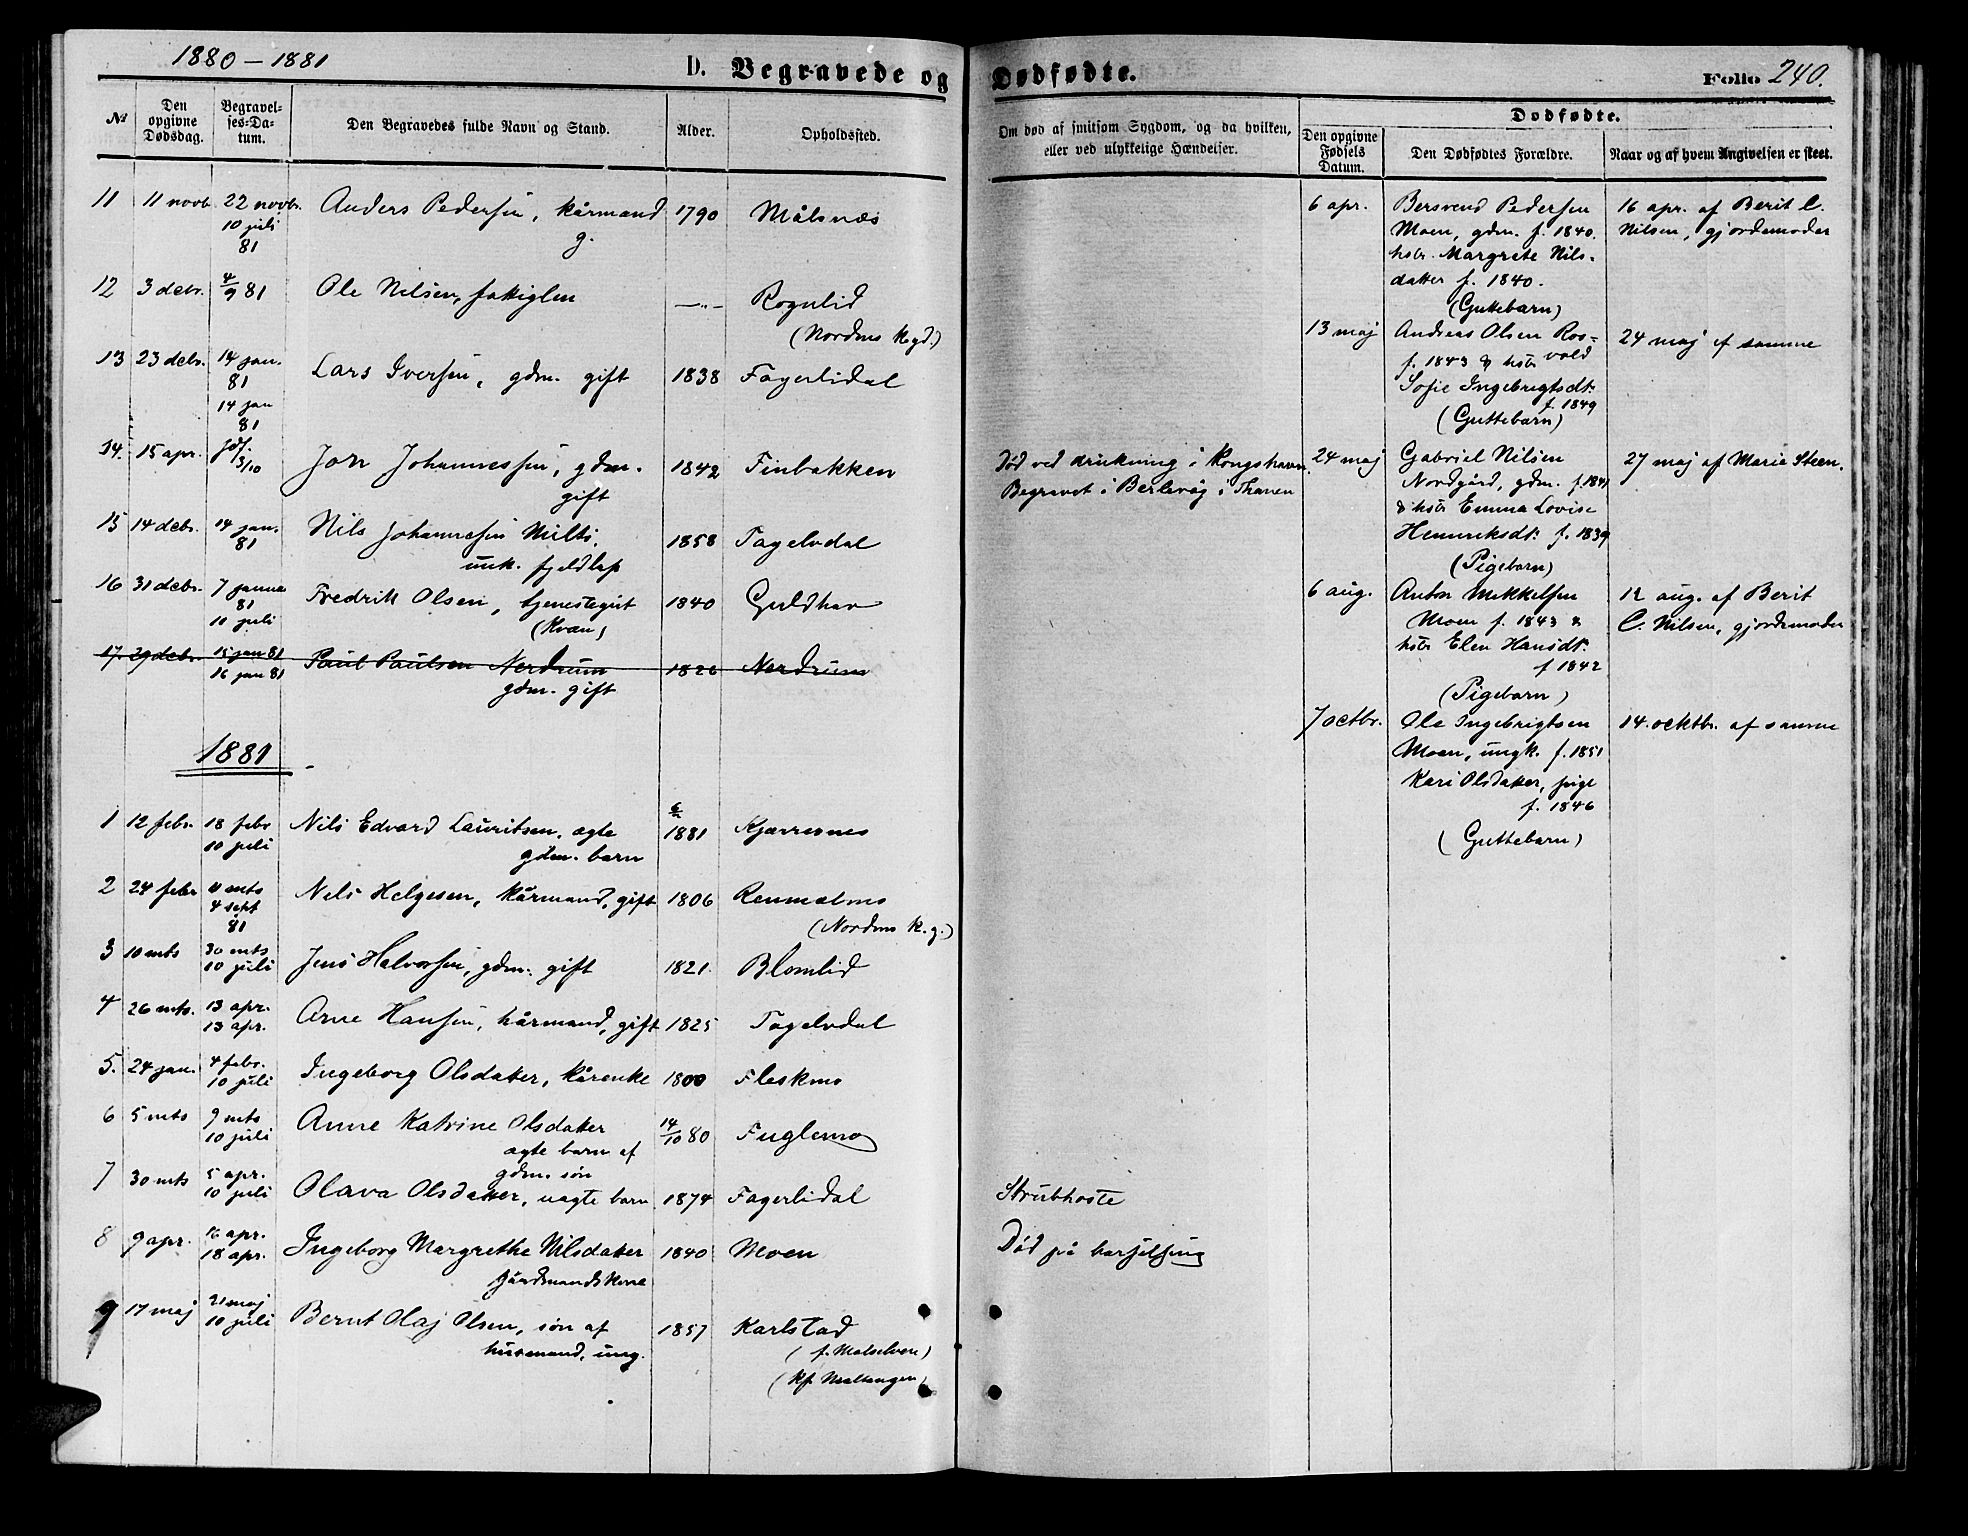 1880 – 1881
D. Begravede og Dødfødte.
Folio 240.
№
Den opgivne Dødsdag.
Begravelses-Datum.
Den Begravedes fulde Navn og Stand.
Alder.
Opholdssted.
Om død af smitsom Sygdom, og da hvilken, eller ved ulykkelige Hændelser.
Dødfødte.
Den opgivne Fødsels Datum.
Den Dødfødtes Forældre.
Naar og af hvem Angivelsen er skeet.
11 11 novb. 22 novb. Anders Pedersen, kårmand 1790 Målsnæs
10 juli
81
g.
12 3 decbr. 4/9 81 Ole Nilsen, fattiglem —"— Rognlid
(Nordmo kgd.)
13 23 debr. 14 jan. Lars Iversen, gdm. gift 1838 Fagerlidal
81
14 jan
81
14. 15 apr. 3/10 Jon Johannessen, gdm. 1842 Finbakken Død ved drukning i Kongshavn.
gift Begravet i Berlevåg i Thanen
15 14 debr. 14 jan. Nils Johannesen 1858 Tagelvdal
81
unk. fjeldlap
16 31 decbr. 7 janua Fredrik Olsen, tjenestegut 1840 Guldhav
81
10 juli (Kvæn)
17. 29 debr. 15 jan 81 Paul Paulsen Nerdrum 1826 Nerdrum
16 jan 81
gdm. gift
1881
1 12 febr. 18 febr Nils Edvard Lauritsen, ægte 1881 Kjærresnes
10 juli gdm. barn
2 24 febr 11 mts Nels Helgesen, kårmand, gift 1806 Renmælmo
4 sept
81 (Nordmo k.g.)
3 10 mts 30 mts Jens Halvorsen, gdm. gift 1821 Blomlid
10 juli
4 26 mts. 13 apr. Arne Hansen, kårmand, gift 1825 Tagelvdal
13 apr.
5. 24 jan. 4 febr. Ingeborg Olsdatter, kårenke 1800 Fleskmo
10 juli
6 5 mts 9 mts Anne Katrine Olsdatter 14/10 80 Fuglemo
10 juli ægte barn af
gdm. søn
7 30 mts 5 apr. Olava Olsdatter, uægte barn 1874 Fagerlidal Strubhoste
10 juli
8 9 apr. 16 apr. Ingeborg Margrethe Nilsdatter 1840 Moen Død på barselseng
18 apr.
gårdmandskone
9 17 maj 21 maj Bernt Olaj Olsen, søn af 1857 Karlstad
10 juli
husmand, ung. (f. Målselven)
(kf. Malangen)
6 apr. Bersvend Pedersen 16 apr. af Berit C.
Moen, gdm. f. 1840. Nilsen, gjordemoder
hstr. Margrete Nils-
datter f. 1840.
(Guttebarn)
13 maj Andreas Olsen Ros- 24 maj af samme
vold
f. 1843 & hstr
Sofie Ingebrigtsdtr.
f. 1849
(Guttebarn)
24 maj Gabriel Nilsen 27 maj af Marie Steen.
Nordgård, gdm. f. 1841
& hstr Emma Lovise
Henriksdtr. f. 1839
(Pigebarn)
6 aug. Anton Mikkelsen 12 aug. af Berit
Moen f. 1843 & C. Nilsen, gjordemoder
hstr Elen Hansdtr.
f 1842
(Pigebarn)
7 octbr. Ole Ingebrigtsen 14. oktbr. af samme
Moen, ungk. f. 1851
Kari Olsdatter, pige
f. 1846
(Guttebarn)